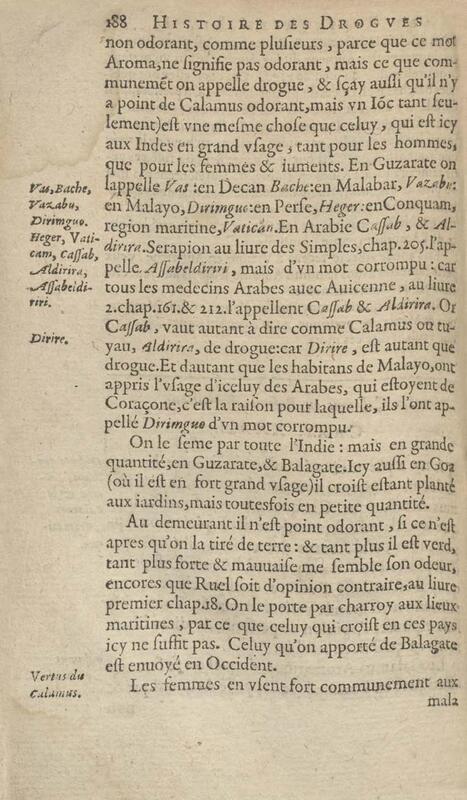 188 HISTOIRE DES DROGVES
non odorant, comme pluſieurs, parce que ce mot
Aroma, ne ſignifie pas odorant, mais ce que com-
munemẽt on appelle drogue, & ſçay auſſi qu'il n'y
a point de Calamus odorant, mais vn Iõc tant ſeu-
lement) eſt vne meſme choſe que celuy, qui eſt icy
aux Indes en grand vſage, tant pour les hommes,
que pour les femmes & iuments. En Guzarate on
lappelle Vas : en Decan Bache: en Malabar, Vazabu:
en Malayo, Dirimguo: en Perſe, Heger: en Conquam,
region maritine, Vatican. En Arabie Caſſab, & Al-
dirira. Serapion au liure des Simples, chap. 205. l'ap-
pelle Aſſabeldiriri, mais d'vn mot corrompu : car
tous les medecins Arabes auec Auicenne, au liure
2. chap. 161. & 212. l'appellent Caſſab & Aldirira. Or
Caſſab, vaut autant à dire comme Calamus ou tu-
yau, Aldirira, de drogue: car Dirire, eſt autant que
drogue. Et dautant que les habitans de Malayo, ont
appris l'vſage d'iceluy des Arabes, qui eſtoyent de
Coraçone, c'eſt la raiſon pour laquelle, ils l'ont ap-
pellé Dirimguo d'vn mot corrompu.
On le ſeme par toute l'Indie : mais en grande
quantité, en Guzarate, & Balagate. Icy auſſi en Goa
(où il eſt en fort grand vſage) il croiſt eſtant planté
aux iardins, mais toutesfois en petite quantité.
Au demeurant il n'eſt point odorant, ſi ce n'eſt
apres qu'on la tiré de terre : & tant plus il eſt verd,
tant plus forte & mauuaiſe me ſemble ſon odeur,
encores que Ruel ſoit d'opinion contraire, au liure
premier chap. 18. On le porte par charroy aux lieux
maritines, par ce que celuy qui croiſt en ces pays
icy ne ſuffit pas. Celuy qu'on apporté de Balagate
eſt enuoyé en Occident.
Les femmes en vſent fort communement aux
mala
Vas, Bache,
Vazabu,
Dirimguo.
Heger, Vati-
cam, Caſſab,
Aldirira,
Aſſabeldi-
riri.
Dirire.
Vertus du
Calamus.